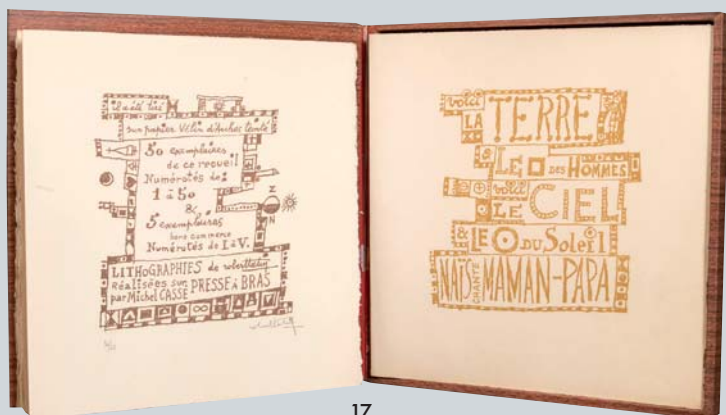 il a été tiré
sur papier Vélin d'Arches teinté
50 exemplaires
de ce recueil
Numérotés de :
1 à 50
&
5 exemplaires
hors commerce
Numérotés de I à V.
LITHOGRAPHIES de roberttatin
Réalisées sur PRESSE à BRAS
par Michel CASSE
voici
LA TERRE
LE DES HOMMES
voici
LE CIEL
& LE DU SoLeil
NAÏS CHANTE MAMAN-PAPA
17